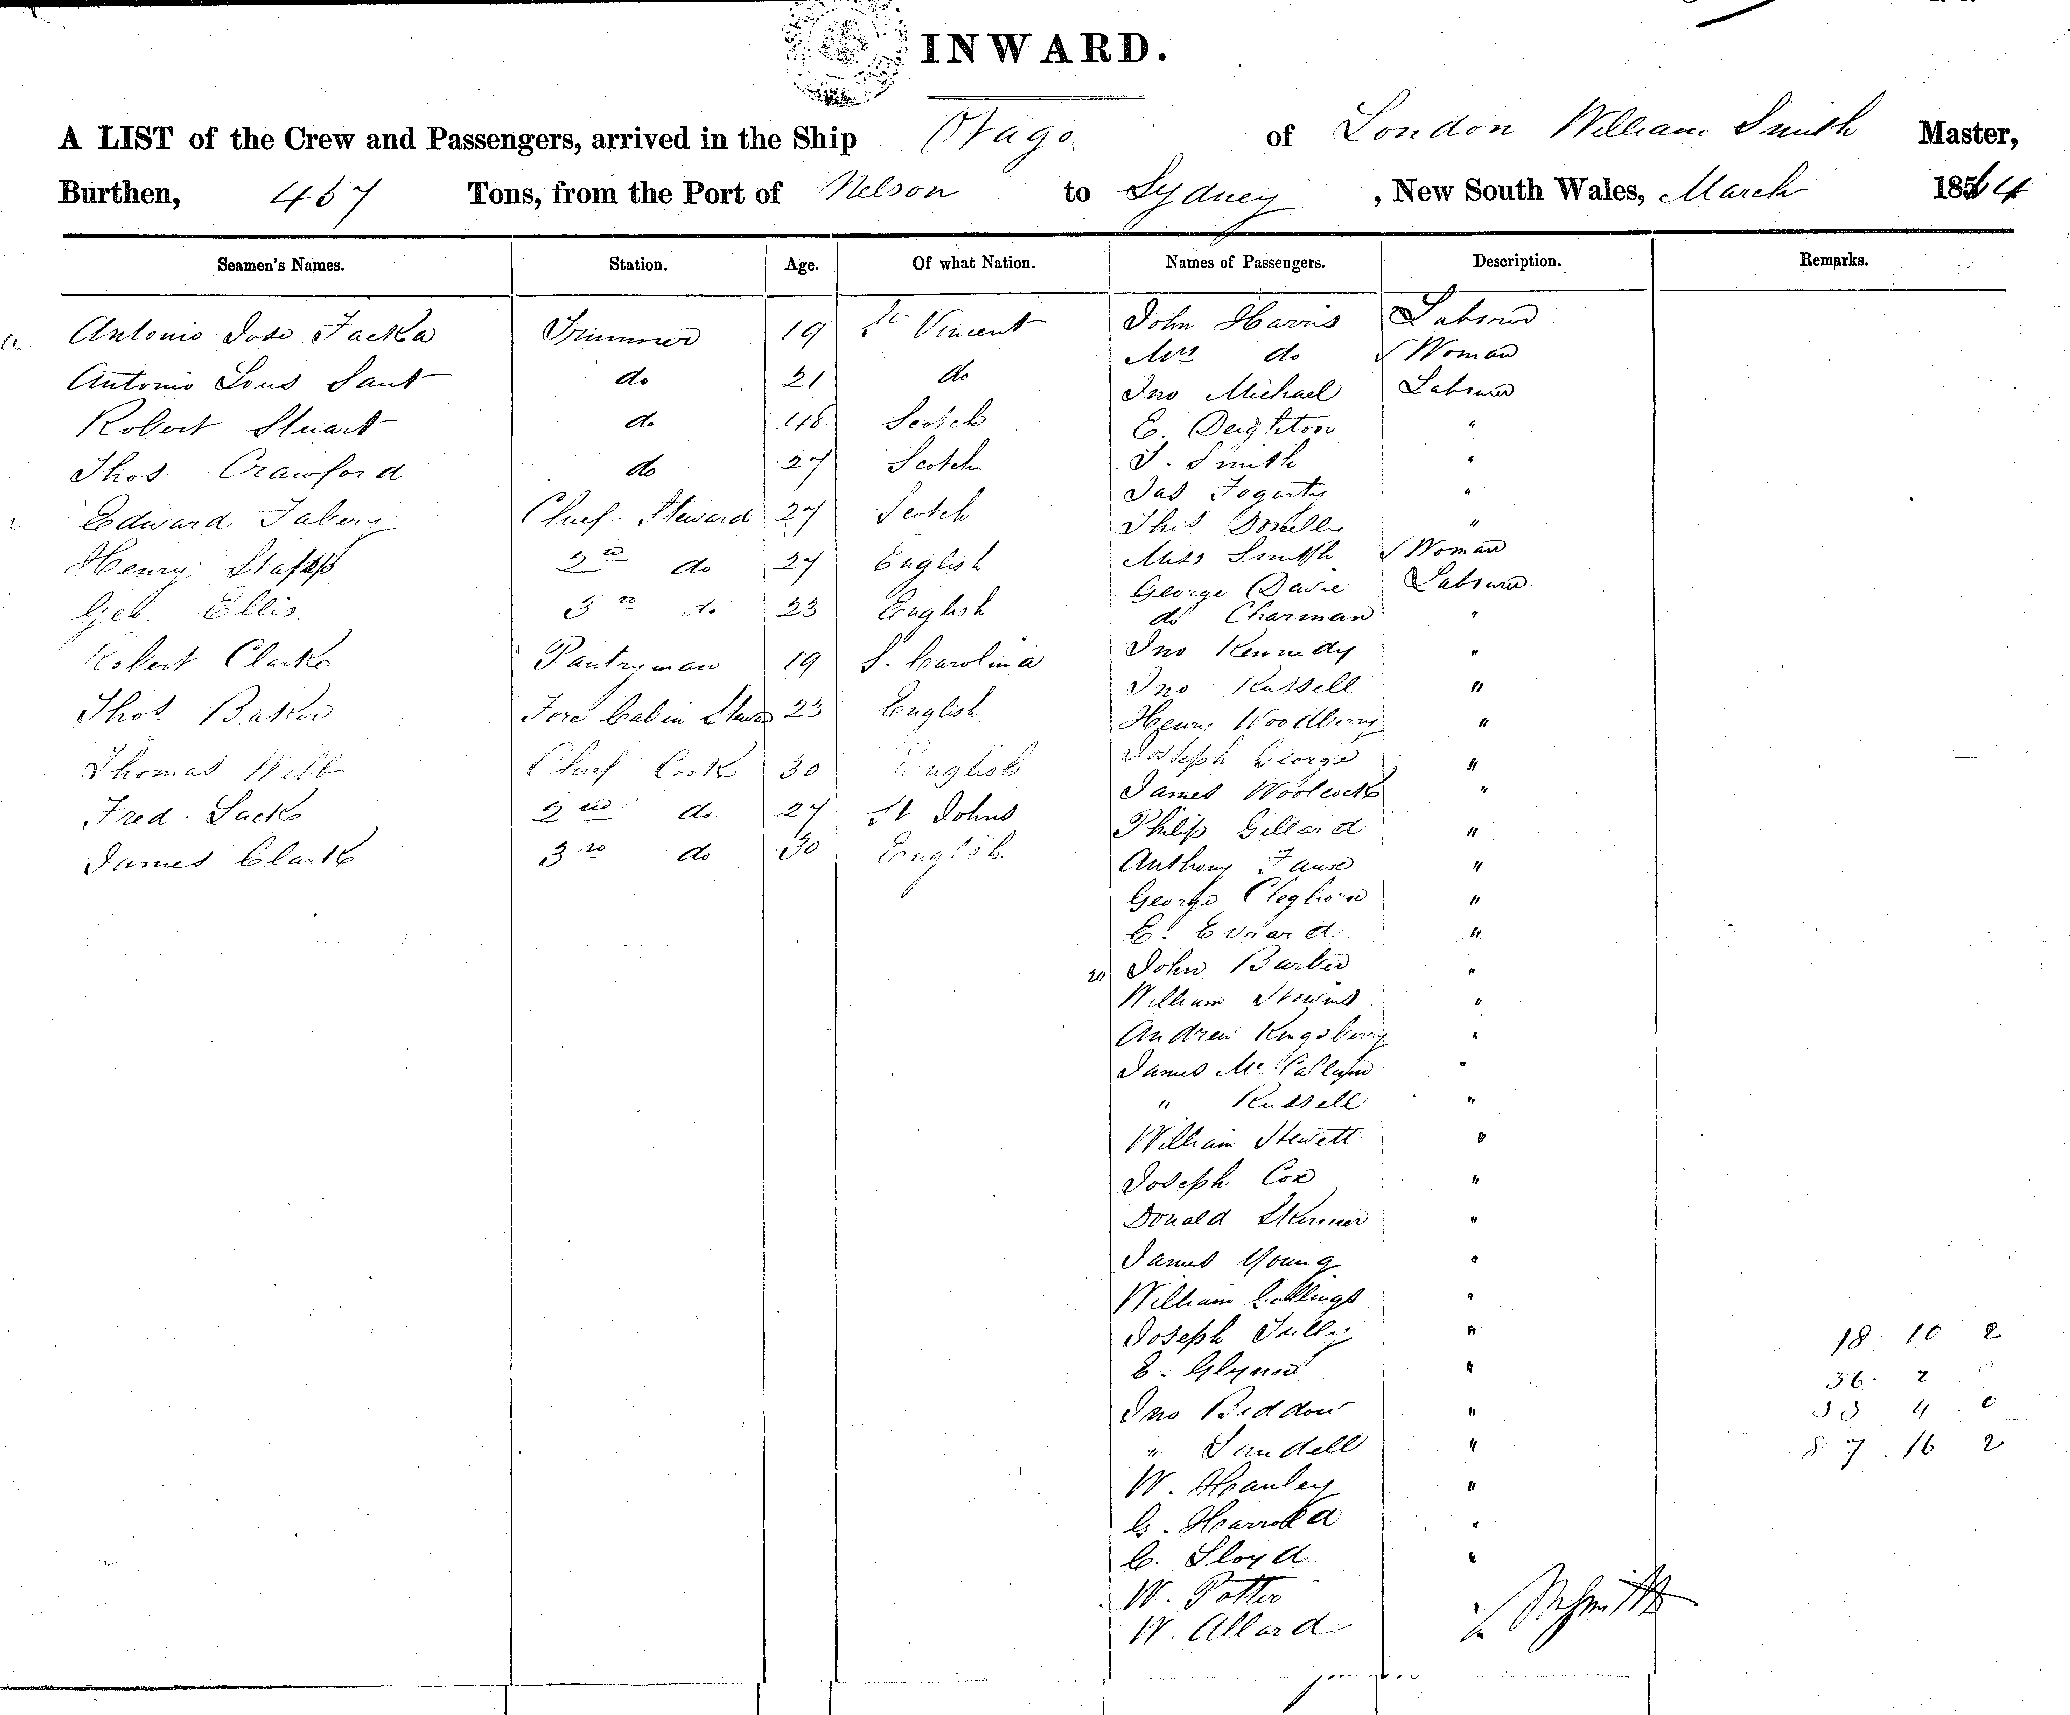 INWARD.
A LIST of the Crew and Passengers, arrived in the Ship Otago of London William Smith Master,
Burthen, 457 Tons, from the Port of Nelson to Sydney, New South Wales, March 1864
Seamen's Names. Station. Age. Of what Nation. Names of Passengers. Description. Remarks.
Antonio Jose Trimmer 19 St Vincent
Antonio Sant do 21 do
Robert Stuart do Scotch
Thos Crawford do 27 Scotch
Edward Chief Steward 27 Scotch
Henry 2nd do 27 English
Geo. Ellis 3rd do 23 English
Robert Clarke Pantryman 19 S. Carolina
Thos Fore Cabin 23 English
Thomas Chief Cook 30 English
Fred. 2nd do 27 St Johns
James Clark 3rd do 30 English
John Harris Labourer
Mrs do Woman
Jno Michael Labourer
E. Deighton "
J. Smith "
Jas Fogarty "
Thos "
Miss Smith Woman
George Davie Labourer
do Charman "
Jno Kennedy "
Jno Russell "
Henry Woodberry "
Joseph George "
James Woolcock "
Philip Gillard "
Anthony "
George Cleghorn "
E. "
20 John Barber "
William "
Andrew Kingsberry "
James McCallum "
" Russell "
William Stewett "
Joseph Cox "
Donald Skinner "
James Young "
William Collings "
Joseph Tully "
E. Glynn "
Jno Beddow "
" Sandell "
W. Hanley "
G. Harrold "
C. Lloyd "
W. Potter
W. Allard
W Smith
18 10 2
36 2
33 4 0
87 16 2